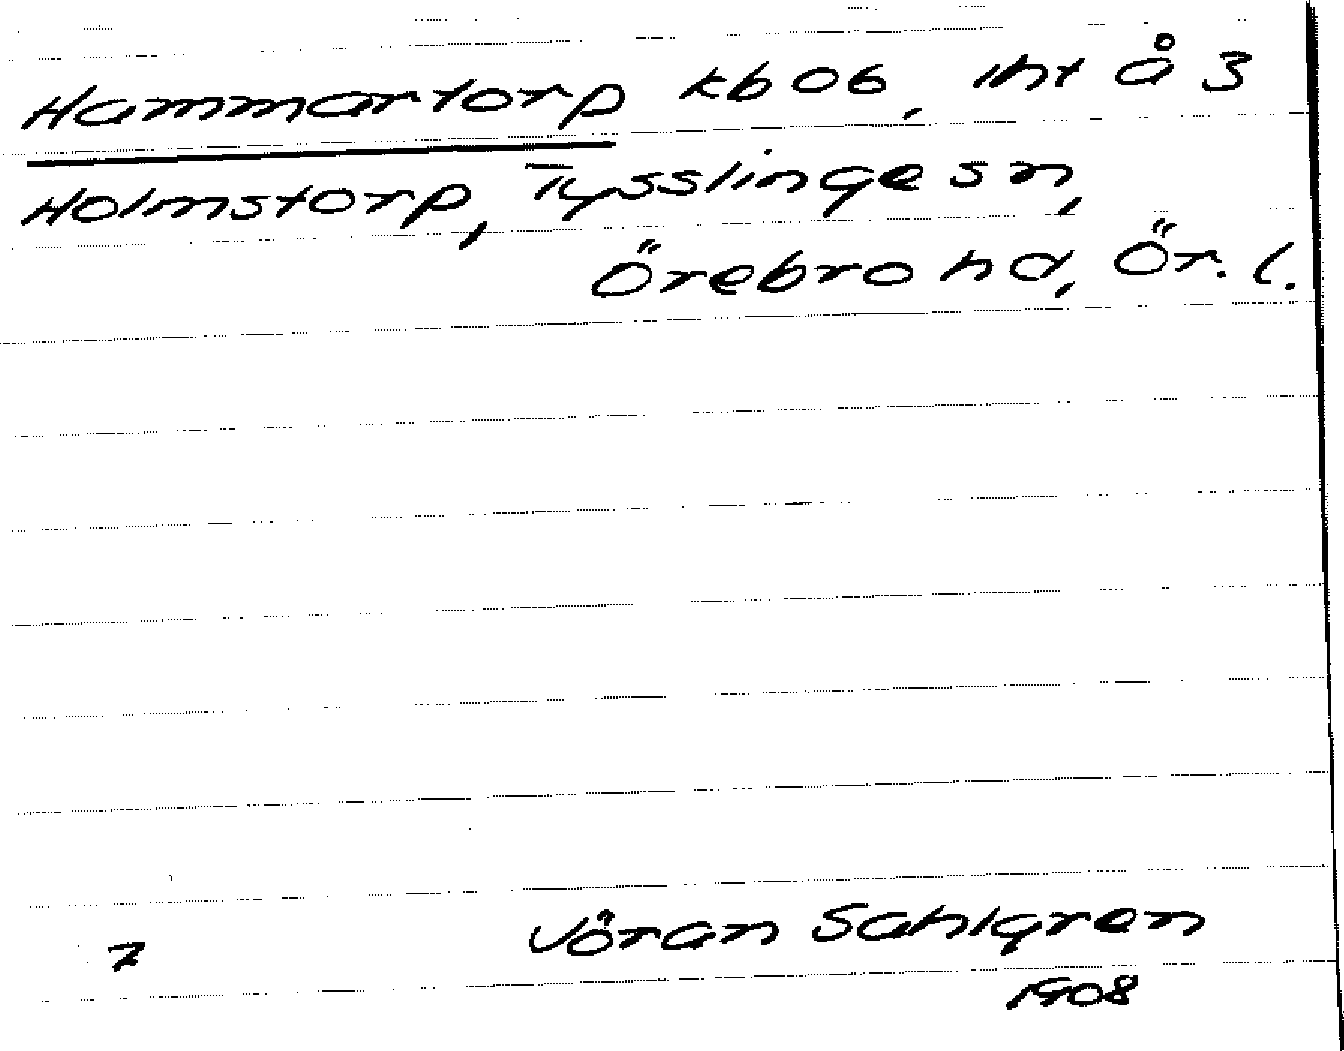 Hammartorp kb 06, iht å 3
Holmstorp, Tysslinge sn,
Örebro hd, Ör. l.
7
Jöran Sahlgren
1908